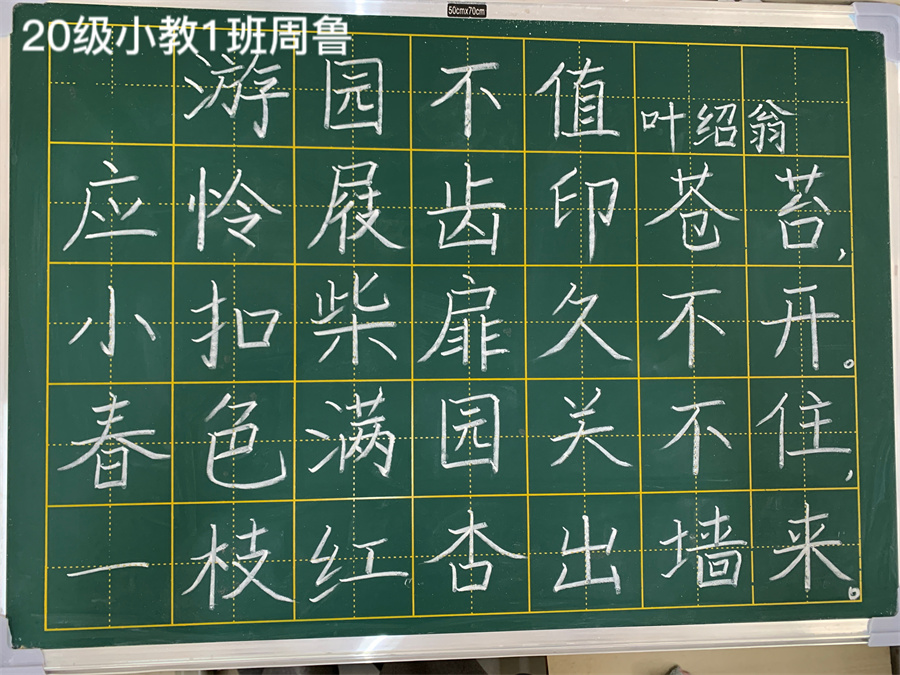 50cmx70cm
20级小教1班周鲁
游园不值 叶绍翁
应怜屐齿印苍苔,
小扣柴扉久不开。
春色满园关不住,
一枝红杏出墙来。